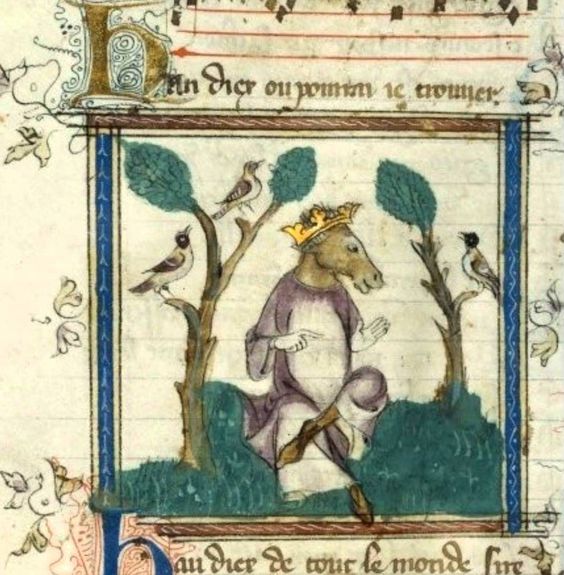 Han diex ou pourrai ie trouuer
Hau diex de tout le monde sire